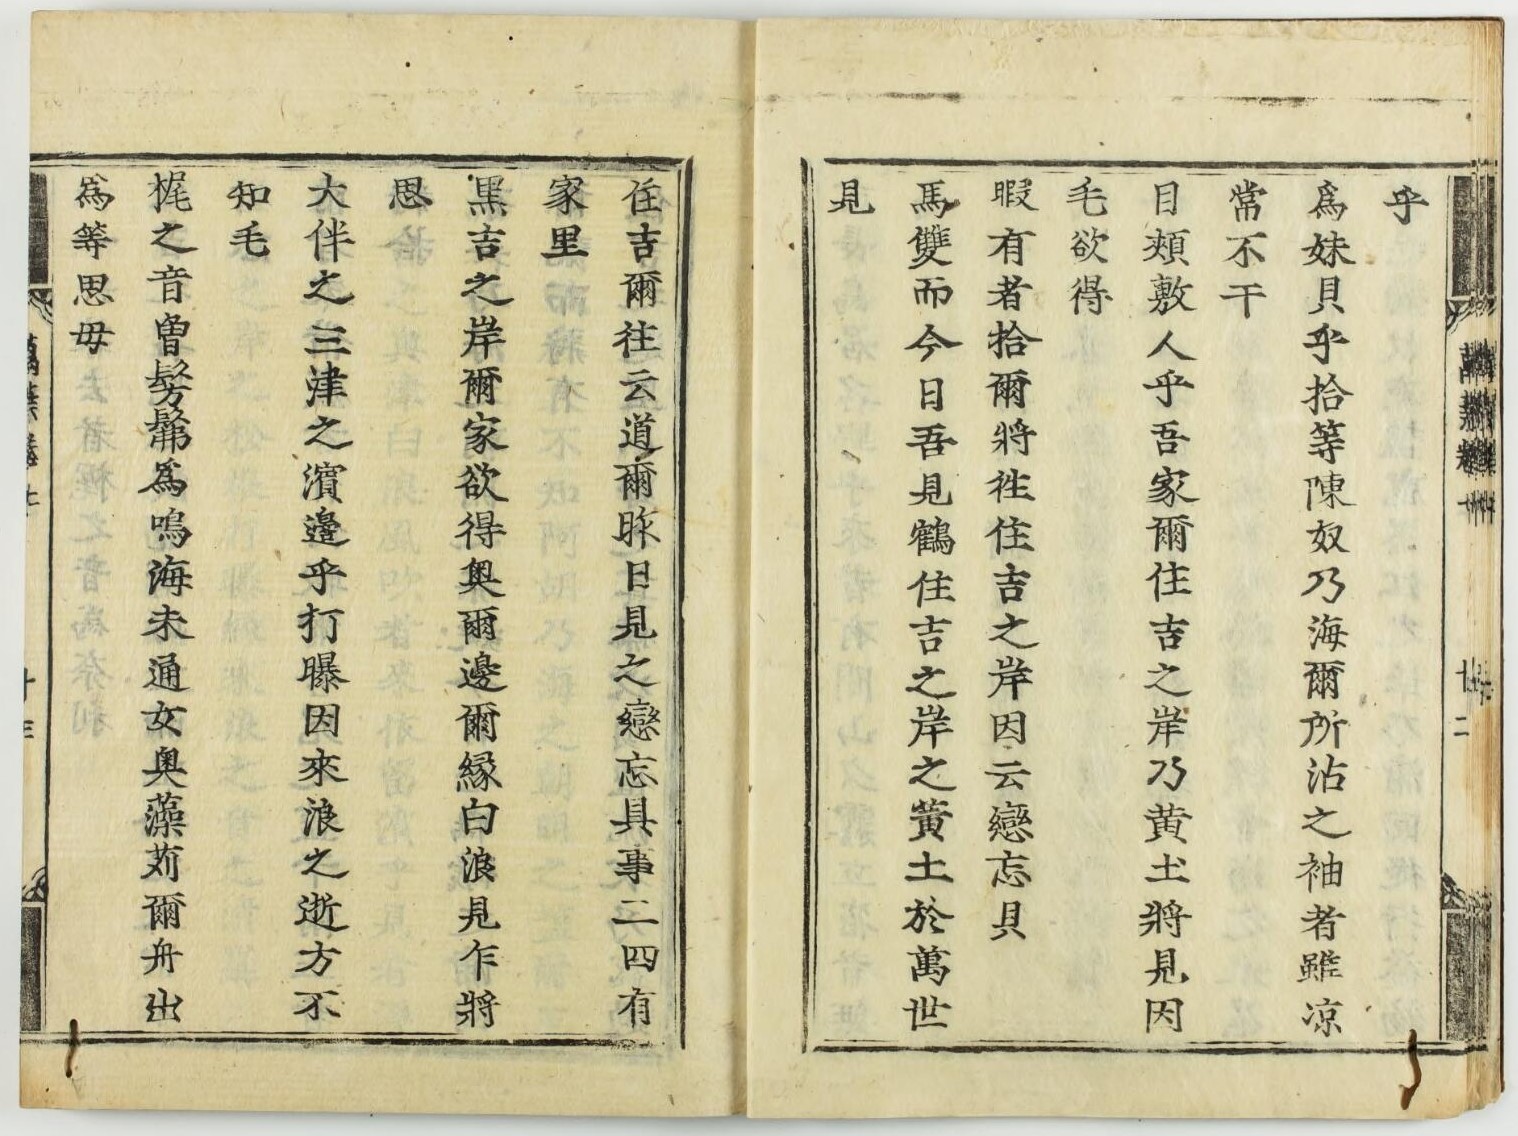 乎
爲妹貝乎拾等陳奴乃海爾所沾之袖者雖凉
常不干
目頬敷人乎吾家爾住吉之岸乃黄土將見因
毛欲得
暇有者拾爾將徃住吉之岸因云戀忘貝
馬雙而今日吾見鶴住吉之岸之黄土於萬世
見
萬葉卷七
廿二
住吉爾往云道爾昨日見之戀忘具事二四有
家里
黑吉之岸爾家欲得奥爾邊爾縁白浪見乍將
思
大伴之三津之濱邊乎打曝因來浪之逝方不
知毛
梶之音曽髣髴爲鳴海未通女奥藻苅爾舟出
爲等思毋
萬葉卷七